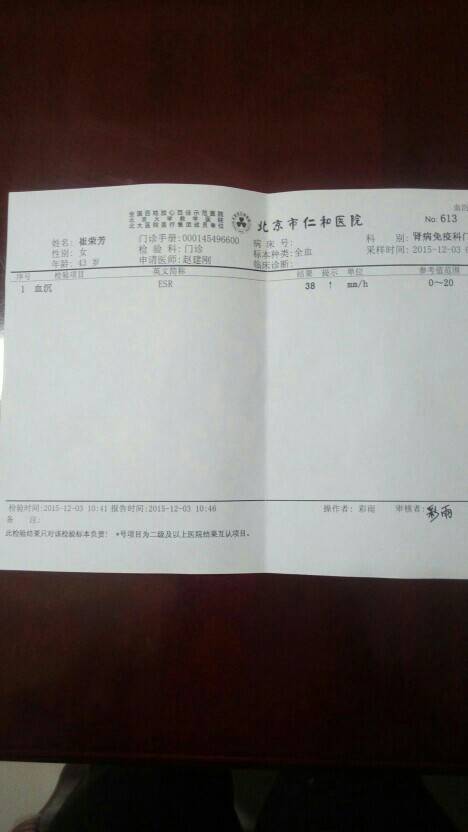 全国百姓放心百佳示范医院
北京大学教学医院
北大医院医疗集团成员单位
北京市仁和医院
No: 613
姓名: 崔荣芳 门诊手册:000145496600 病床号: 科别: 肾病免疫科门
性别: 女 检验科: 门诊 标本种类: 全血 采样时间: 2015-12-03
年龄: 43 岁 申请医师: 赵建刚 临床诊断:
序号 检验项目 英文简称 结果 提示 单位 参考值范围
1 血沉 ESR 38 ↑ mm/h 0～20
检验时间:2015-12-03 10:41 报告时间:2015-12-03 10:46 操作者: 彩雨 审核者: 彩雨
备 注:
此检验结果只对该检验标本负责! *号项目为二级及以上医院结果互认项目。